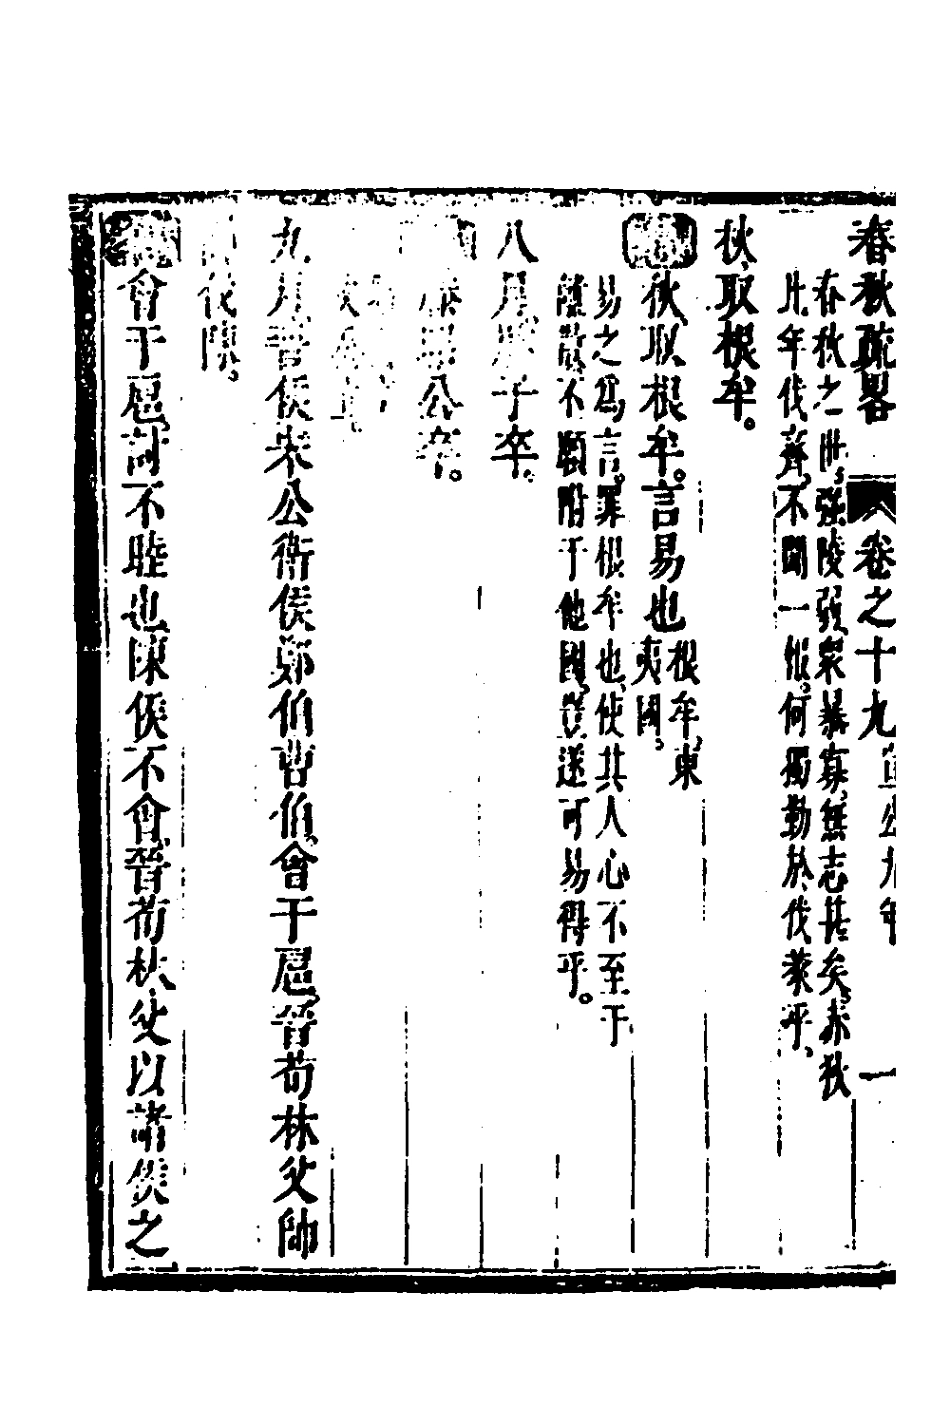 春秋疏畧 卷之十九 宣公九年 一
春秋之世,强陵弱,衆暴寡,無志甚矣,赤狄
比年伐齊,不聞一報,何獨勤於伐萊乎、
秋,取根牟。
秋,取根牟。言易也
根牟,東
夷國,
易之爲言,罪根牟也,使其人心不至于
離散,不願附于他國,豈遂可易得乎。
八月滕子卒。
滕昭公卒。
九月晉侯宋公衛侯鄭伯曹伯,會于扈,晉荀林父帥
師伐陳。
會于扈,討不睦也,陳侯不會,晉荀林父以諸侯之